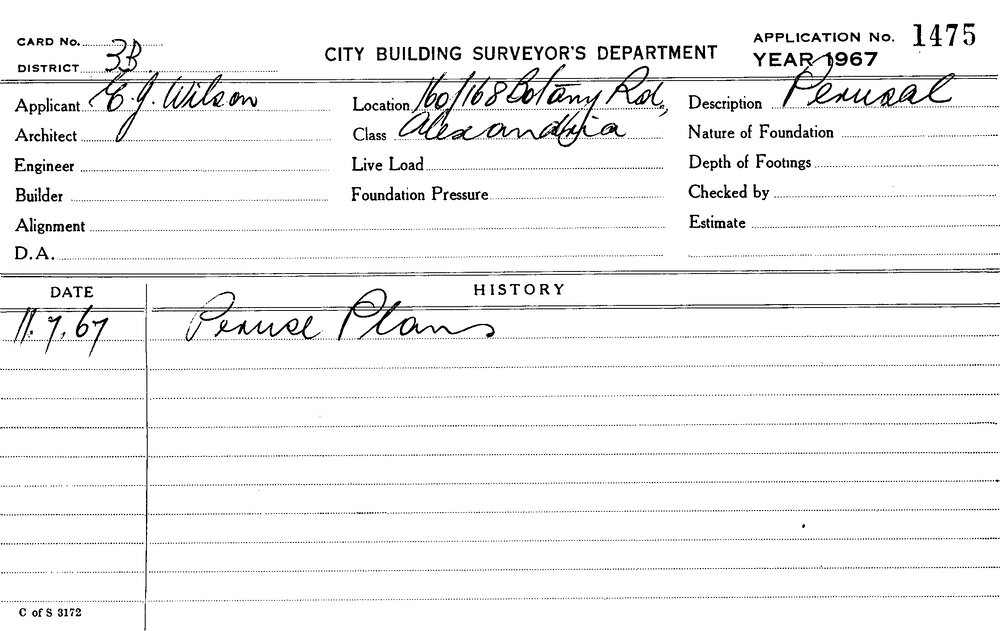 CARD No. APPLICATION No. 1475
DISTRICT 3B CITY BUILDING SURVEYOR'S DEPARTMENT YEAR 1967
Applicant E. J. Wilson Location 160/168 Botany Rd., Description Perusal
Architect Class Alexandria Nature of Foundation
Engineer Live Load Depth of Footings
Builder Foundation Pressure Checked by
Alignment Estimate
D.A.
DATE HISTORY
11.7.67 Peruse Plans
C of S 3172